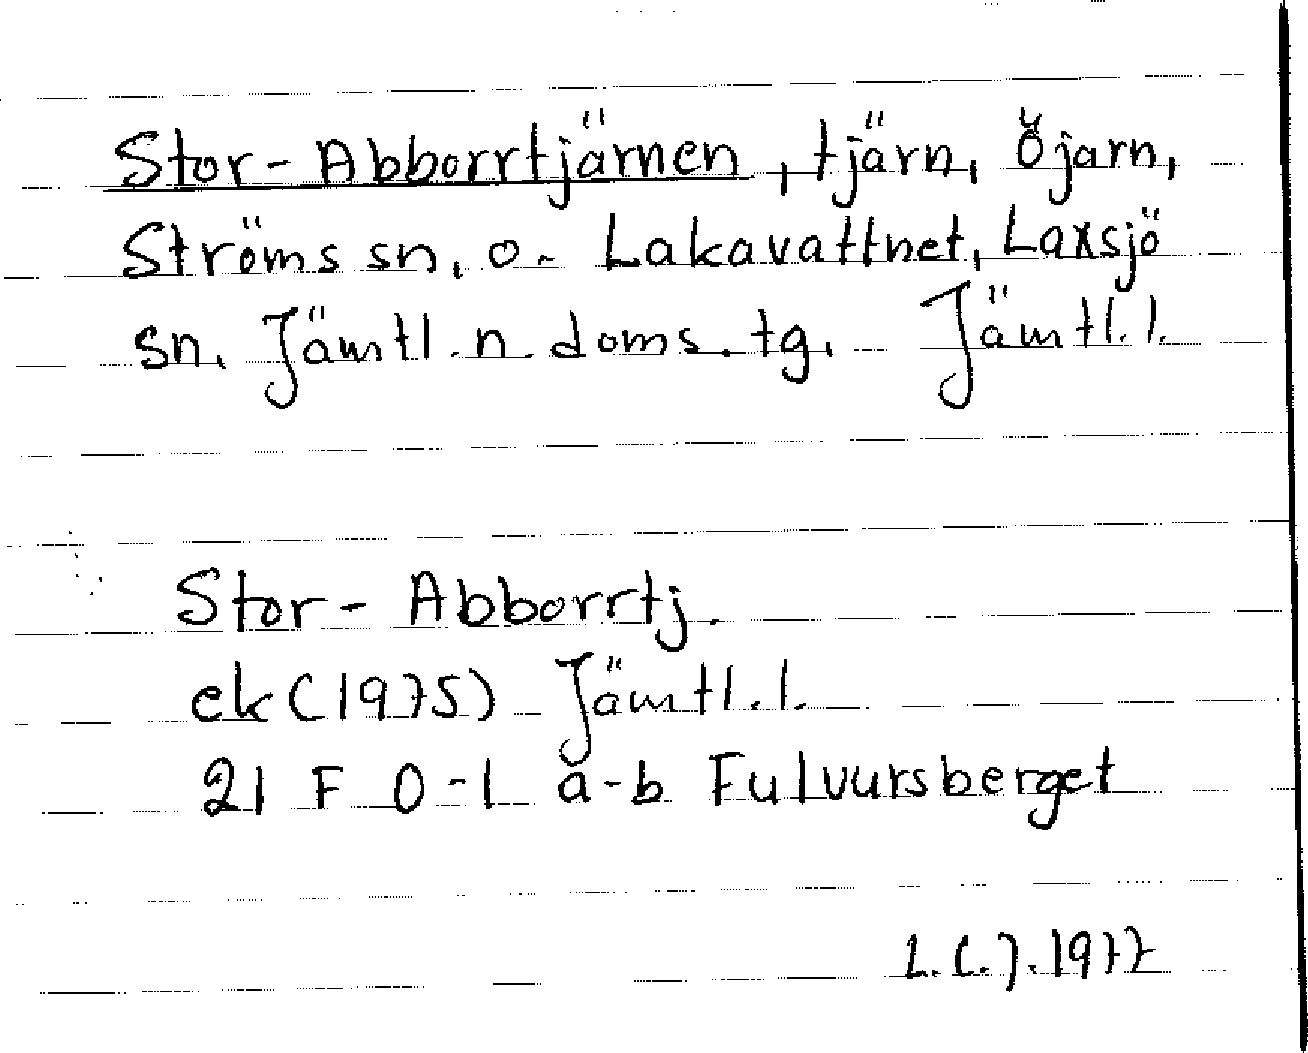 Stor-Abborrtjärnen, tjärn, Öjarn,
Ströms sn, o. Lakavattnet, Laxsjö
sn, Jämtl. n. doms. tg. Jämtl. l.
Stor-Abborrtj.
ek (1975) Jämtl. l.
21 F 0-1 a-b Fulvursberget
L. C. J. 1977